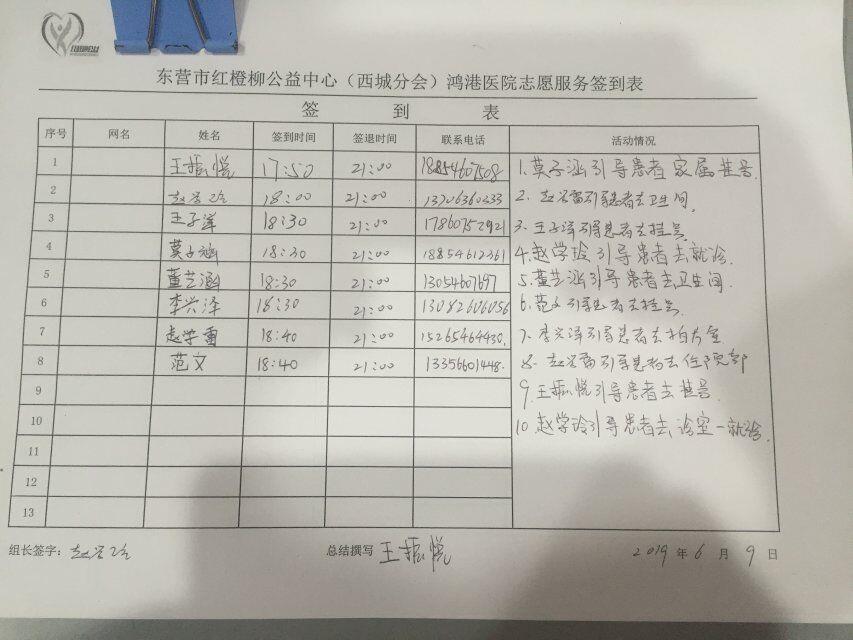 东营市红橙柳公益中心（西城分会）鸿港医院志愿服务签到表
签 到 表
序号 网名 姓名 签到时间 签退时间 联系电话 活动情况
1 王振悦 17:50 21:00 18854607508
2 赵学玲 18:00 21:00 13706360333
3 王子洋 18:30 21:00 17860752921
4 莫子涵 18:30 21:00 18854612361
5 董芝涵 18:30 21:00 13054607697
6 李兴泽 18:30 21:00 13082606056
7 赵学雷 18:40 21:00 15265464430
8 范文 18:40 21:00 13356601448
9
10
11
12
13
1.莫子涵引导患者家属挂号
2.赵学雷引导患者去卫生间
3.王子洋引导患者去挂号
4.赵学玲引导患者去就诊
5.董芝涵引导患者去卫生间
6.范文引导患者去挂号
7.李兴泽引导患者去拍片室
8.赵学雷引导患者去住院部
9.王振悦引导患者去挂号
10.赵学玲引导患者去诊室一就诊
组长签字：赵学玲 总结撰写 王振悦 2019年6月9日